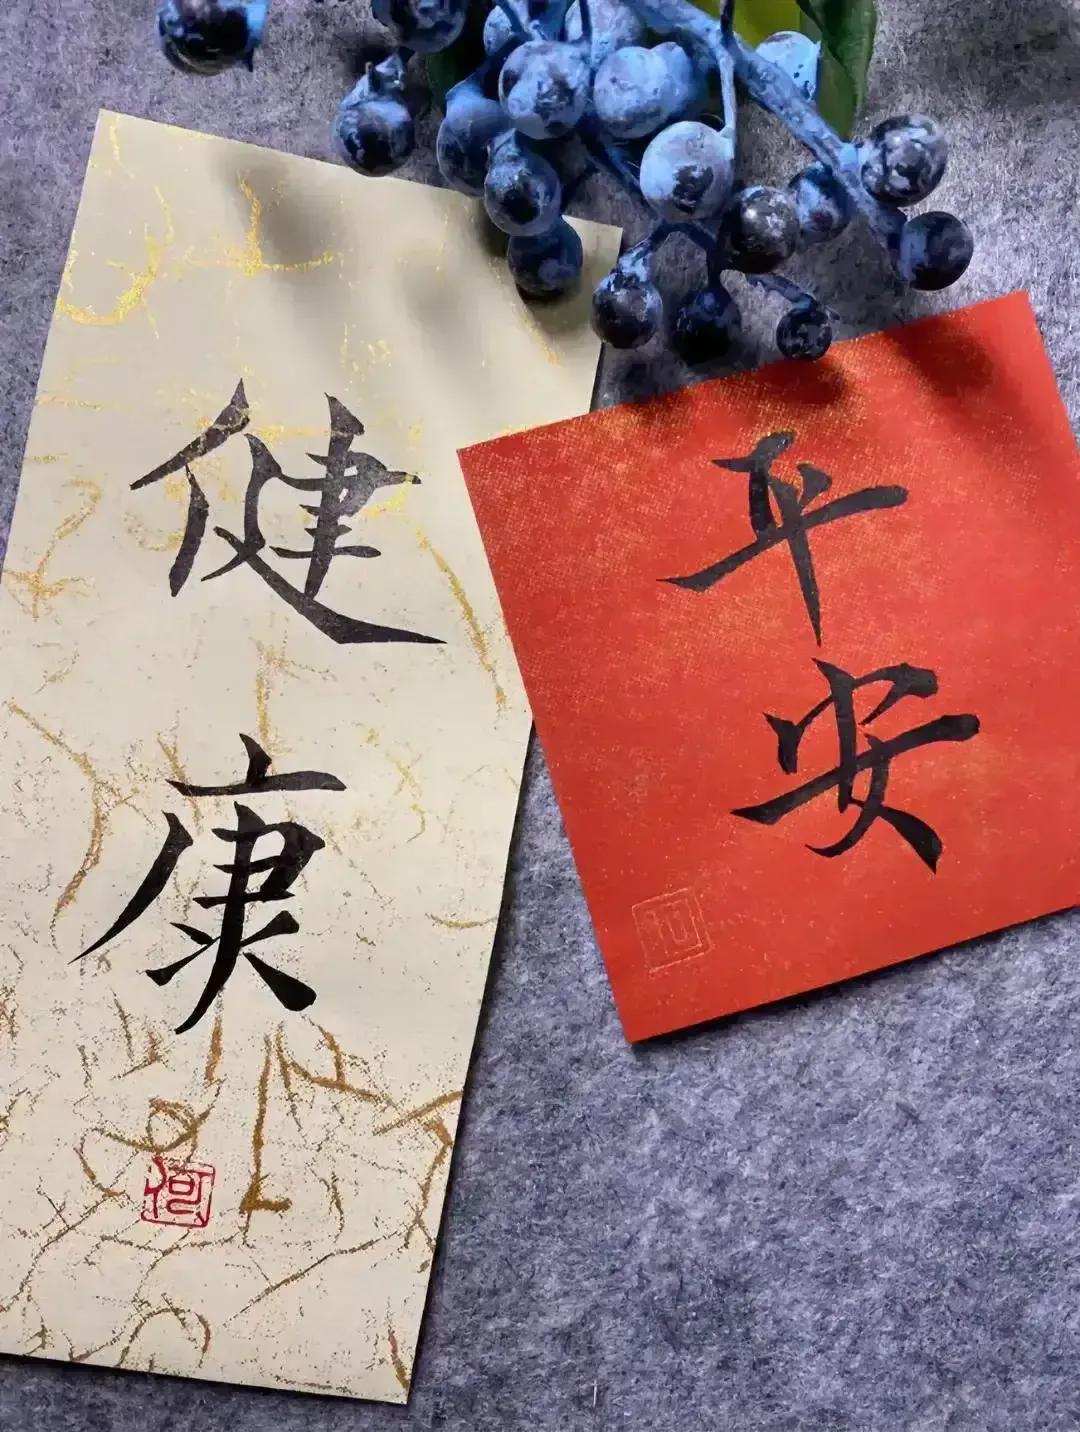 健康
何
平安